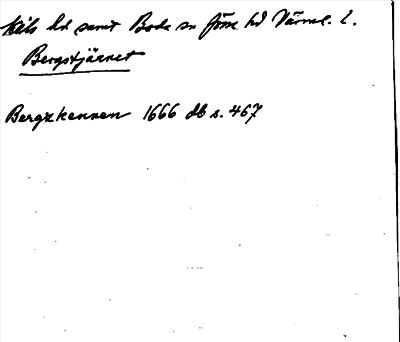 Kils hd samt Boda sn Jösse hd Värml. l.
Bergstjärnet
Bergzkennen 1666 db s. 467